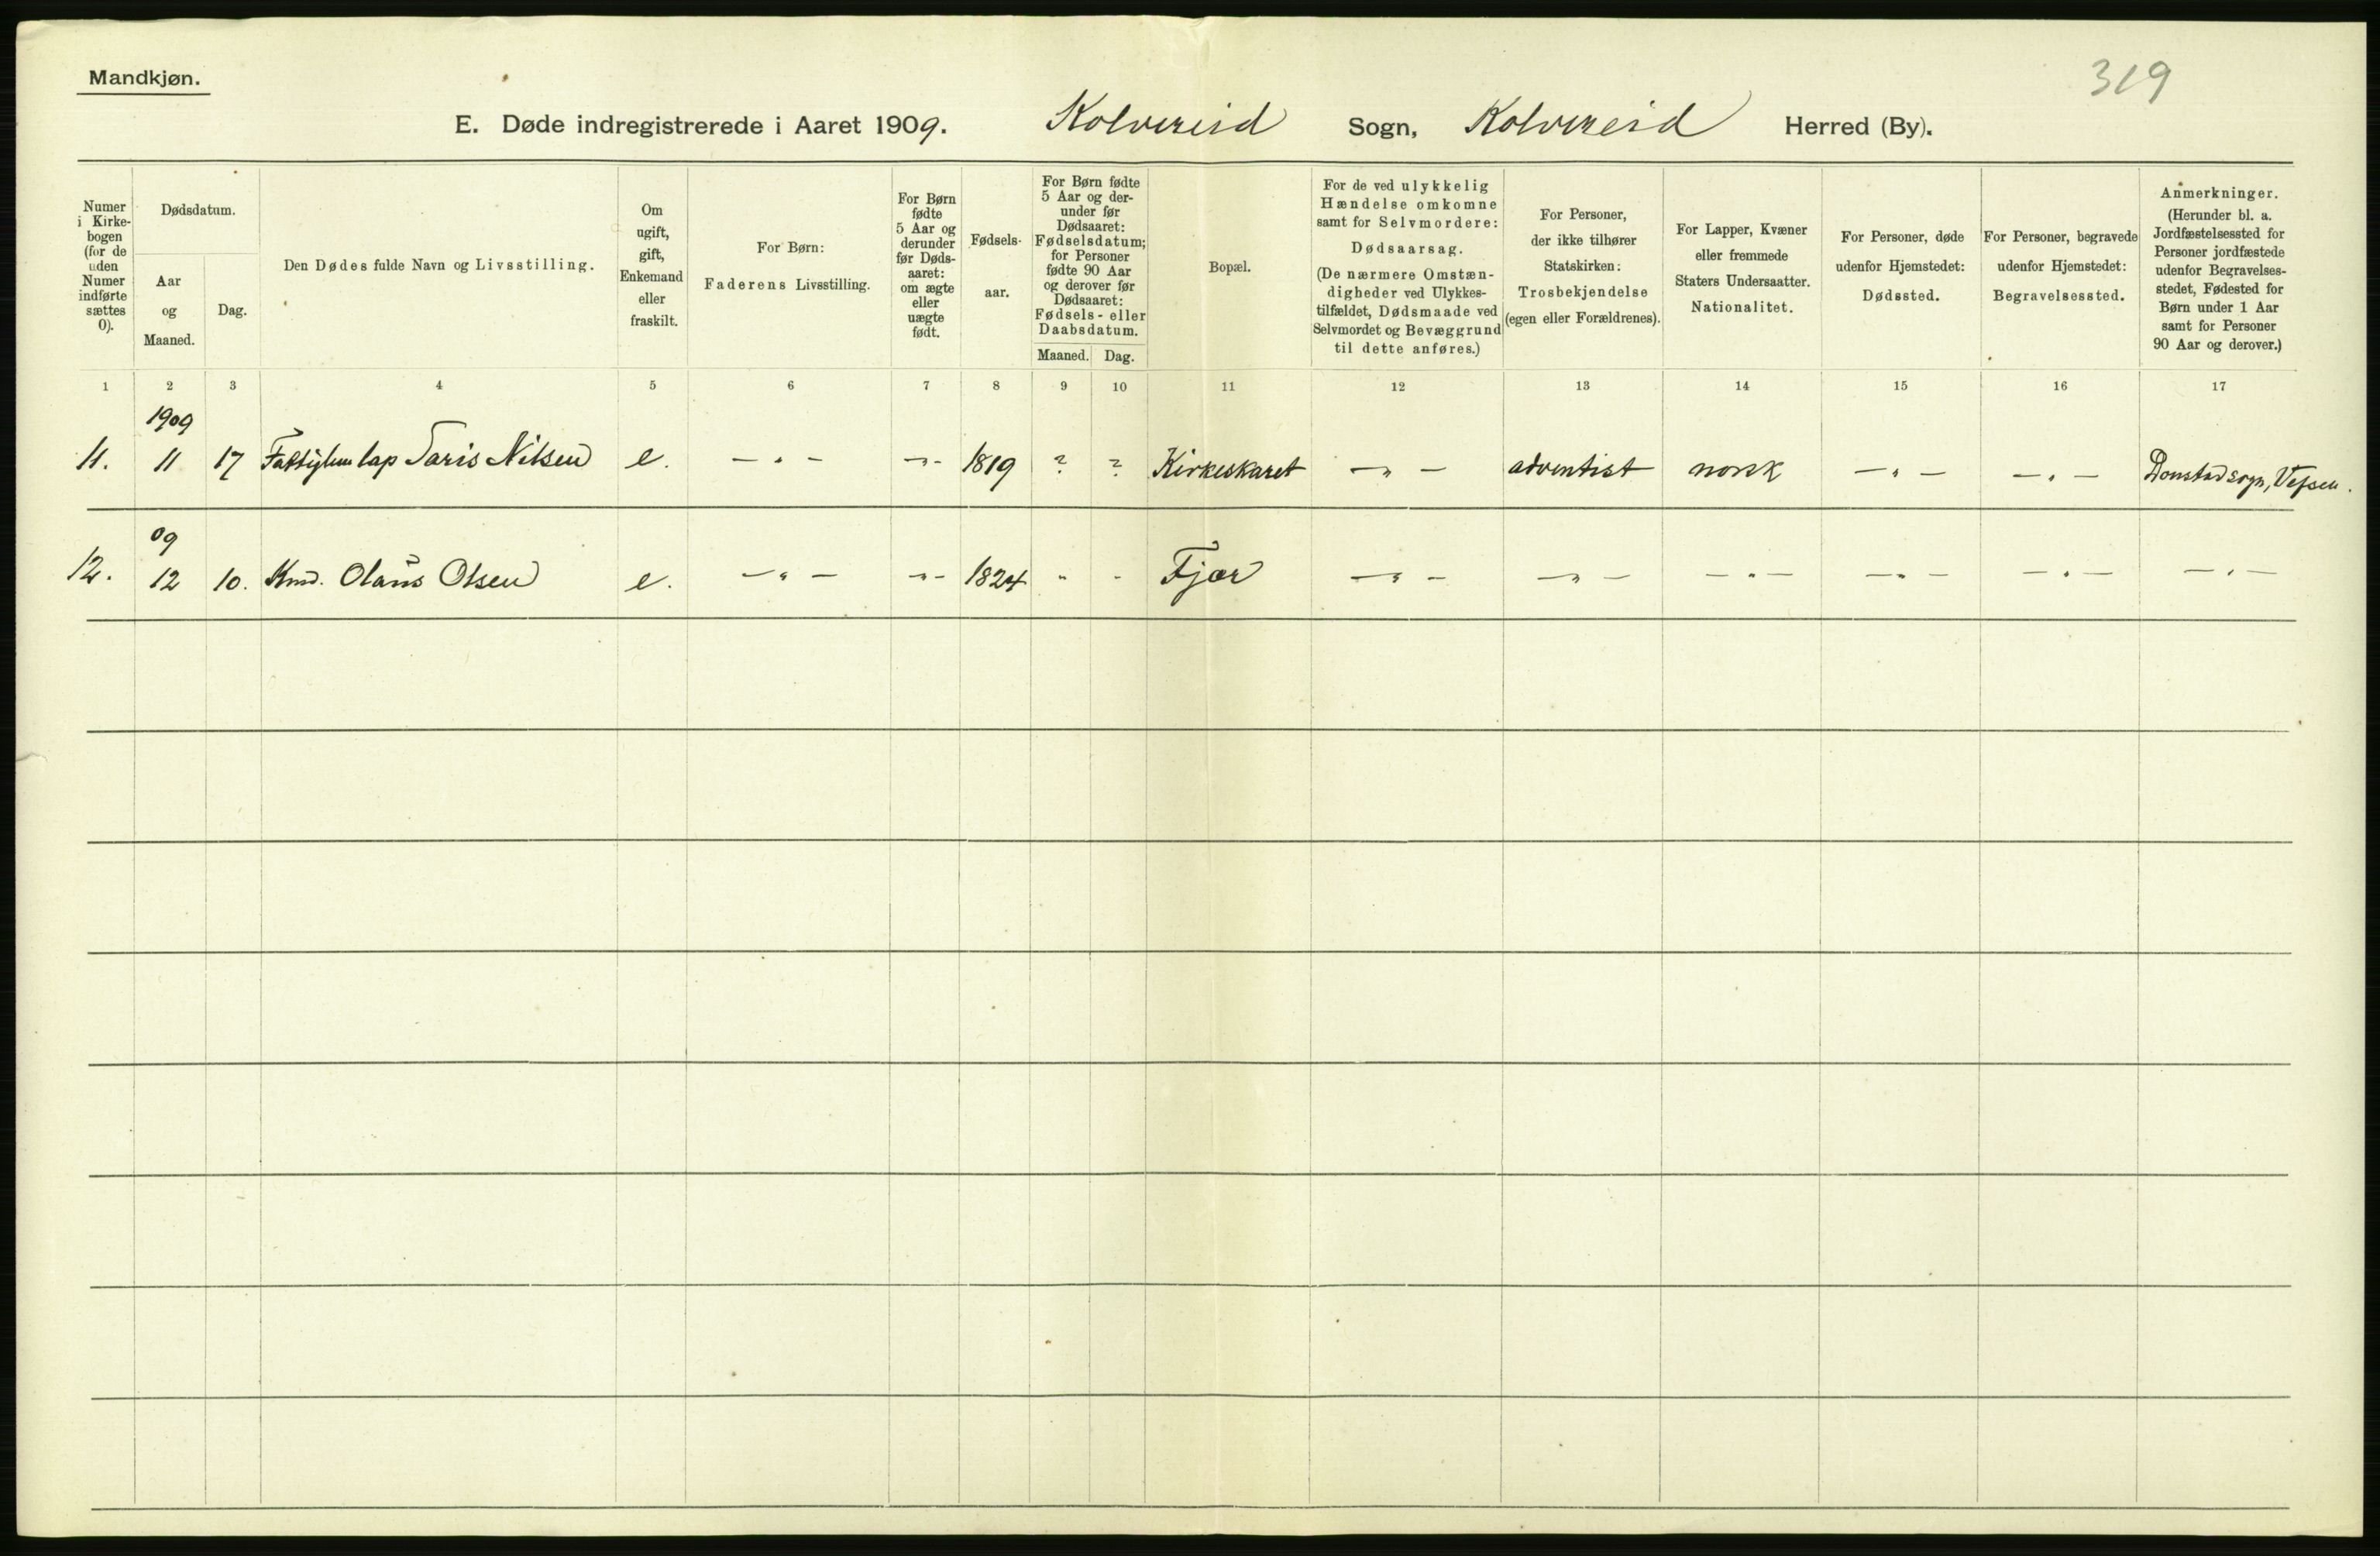 Mandkjøn.
319
E. Døde indregistrerede i Aaret 1909. Kolvereid Sogn, Kolvereid Herred (By).
Numer
i Kirke-
bogen
(for de
uden
Numer
indførte
sættes
0).
Dødsdatum.
Aar
og
Maaned.
Dag.
Den Dødes fulde Navn og Livsstilling.
Om
ugift,
gift,
Enkemand
eller
fraskilt.
For Børn:
Faderens Livsstilling.
For Børn
fødte
5 Aar og
derunder
før Døds-
aaret:
om ægte
eller
uægte
født.
Fødsels-
aar.
For Børn fødte
5 Aar og der-
under før
Dødsaaret:
Fødselsdatum;
for Personer
fødte 90 Aar
og derover før
Dødsaaret:
Fødsels- eller
Daabsdatum.
Maaned. Dag.
Bopæl.
For de ved ulykkelig
Hændelse omkomne
samt for Selvmordere:
Dødsaarsag.
(De nærmere Omstæn-
digheder ved Ulykkes-
tilfældet, Dødsmaade ved
Selvmordet og Bevæggrund
til dette anføres.)
For Personer,
der ikke tilhører
Statskirken:
Trosbekjendelse
(egen eller Forældrenes).
For Lapper, Kvæner
eller fremmede
Staters Undersaatter.
Nationalitet.
For Personer, døde
udenfor Hjemstedet:
Dødssted.
For Personer, begravede
udenfor Hjemstedet:
Begravelsessted.
Anmerkninger.
(Herunder bl. a.
Jordfæstelsessted for
Personer jordfæstede
udenfor Begravelses-
stedet, Fødested for
Børn under 1 Aar
samt for Personer
90 Aar og derover.)
1 2 3 4 5 6 7 8 9 10 11 12 13 14 15 16 17
1909
11. 11 17 lap Nilsen e. —„— -„- 1819 ? ? Kirkeskaret —„— adventist norsk —„— —„— Vefsen.
09
12. 12 10. Kmd. Olaus Olsen e. —„— -„- 1824 „ - Fjær —„— —„— —„— —„— —„— —„—